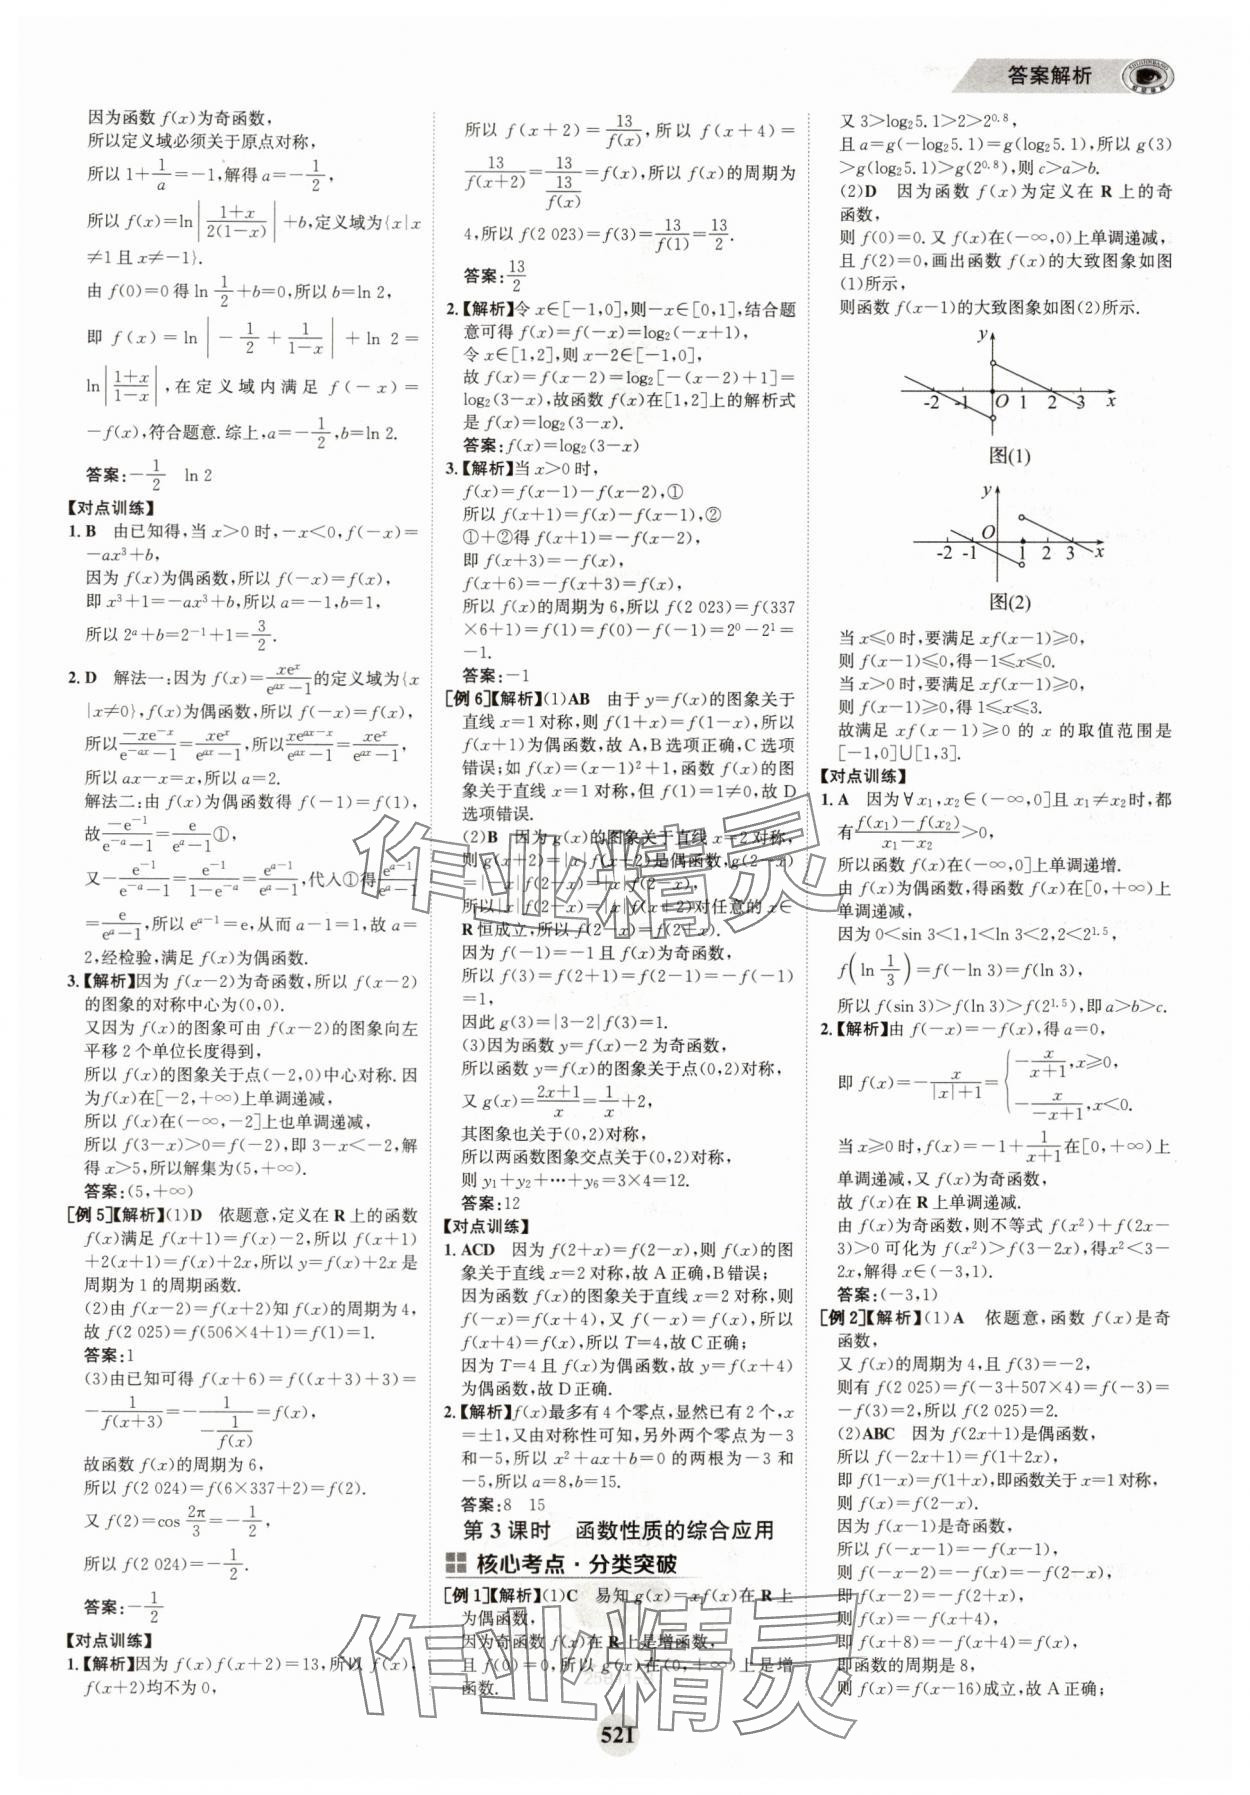 答案解析
因为函数 f(x)为奇函数,
所以定义域必须关于原点对称,
所以 1+1/a=-1,解得 a=-1/2,
所以 f(x)=ln|(1+x)/(2(1-x))|+b,定义域为{x|x
≠1 且 x≠-1}.
由 f(0)=0 得 ln 1/2+b=0,所以 b=ln 2,
即 f(x)=ln|-1/2+1/(1-x)|+ln 2=
ln|(1+x)/(1-x)|,在定义域内满足 f(-x)=
-f(x),符合题意.综上,a=-1/2,b=ln 2.
答案:-1/2 ln 2
【对点训练】
1. B 由已知得,当 x>0 时,-x<0,f(-x)=
-ax³+b,
因为 f(x)为偶函数,所以 f(-x)=f(x),
即 x³+1=-ax³+b,所以 a=-1,b=1,
所以 2ᵃ+b=2⁻¹+1=3/2.
2. D 解法一:因为 f(x)=xeˣ/(eᵃˣ-1)的定义域为{x
|x≠0},f(x)为偶函数,所以 f(-x)=f(x),
所以 -xe⁻ˣ/(e⁻ᵃˣ-1)=xeˣ/(eᵃˣ-1),所以 xeᵃˣ⁻ˣ/(eᵃˣ-1)=xeˣ/(eᵃˣ-1),
所以 ax-x=x,所以 a=2.
解法二:由 f(x)为偶函数得 f(-1)=f(1),
故 -e⁻¹/(e⁻ᵃ-1)=e/(eᵃ-1)①,
又-e⁻¹/(e⁻ᵃ-1)=e⁻¹/(1-e⁻ᵃ)=eᵃ⁻¹/(eᵃ-1),代入①得 eᵃ⁻¹/(eᵃ-1)
=e/(eᵃ-1),所以 eᵃ⁻¹=e,从而 a-1=1,故 a=
2,经检验,满足 f(x)为偶函数.
3.【解析】因为 f(x-2)为奇函数,所以 f(x-2)
的图象的对称中心为(0,0).
又因为 f(x)的图象可由 f(x-2)的图象向左
平移 2 个单位长度得到,
所以 f(x)的图象关于点(-2,0)中心对称.因
为f(x)在[-2,+∞)上单调递减,
所以 f(x)在(-∞,-2]上也单调递减,
所以 f(3-x)>0=f(-2),即 3-x<-2,解
得 x>5,所以解集为(5,+∞).
答案:(5,+∞)
[例 5]【解析】(1)D 依题意,定义在 R 上的函数
f(x)满足 f(x+1)=f(x)-2,所以 f(x+1)
+2(x+1)=f(x)+2x,所以 y=f(x)+2x 是
周期为 1 的周期函数.
(2)由 f(x-2)=f(x+2)知 f(x)的周期为 4,
故 f(2 025)=f(506×4+1)=f(1)=1.
答案:1
(3)由已知可得 f(x+6)=f((x+3)+3)=
-1/f(x+3)=-1/(-1/f(x))=f(x),
故函数 f(x)的周期为 6,
所以 f(2 024)=f(6×337+2)=f(2).
又 f(2)=cos 2π/3=-1/2,
所以 f(2 024)=-1/2.
答案:-1/2
【对点训练】
1.【解析】因为 f(x)f(x+2)=13,所以 f(x),
f(x+2)均不为 0,
所以 f(x+2)=13/f(x),所以 f(x+4)=
13/f(x+2)=13/(13/f(x))=f(x),所以 f(x)的周期为
4,所以 f(2 023)=f(3)=13/f(1)=13/2.
答案:13/2
2.【解析】令 x∈[-1,0],则-x∈[0,1],结合题
意可得 f(x)=f(-x)=log₂(-x+1),
令 x∈[1,2],则 x-2∈[-1,0],
故 f(x)=f(x-2)=log₂[-(x-2)+1]=
log₂(3-x),故函数 f(x)在[1,2]上的解析式
是 f(x)=log₂(3-x).
答案:f(x)=log₂(3-x)
3.【解析】当 x>0 时,
f(x)=f(x-1)-f(x-2),①
所以 f(x+1)=f(x)-f(x-1),②
①+②得 f(x+1)=-f(x-2),
即 f(x+3)=-f(x),
f(x+6)=-f(x+3)=f(x),
所以 f(x)的周期为 6,所以 f(2 023)=f(337
×6+1)=f(1)=f(0)-f(-1)=2⁰-2¹=
-1.
答案:-1
[例 6]【解析】(1)AB 由于 y=f(x)的图象关于
直线 x=1 对称,则 f(1+x)=f(1-x),所以
f(x+1)为偶函数,故 A,B 选项正确,C 选项
错误;如 f(x)=(x-1)²+1,函数 f(x)的图
象关于直线 x=1 对称,但 f(1)=1≠0,故 D
选项错误.
(2)B 因为 g(x)的图象关于直线 x=2 对称,
则 g(x+2)=|x|f(x+2)是偶函数,g(2-x)
=|-x|f(2-x)=|x|f(2-x),
所以|x|f(2-x)=|x|f(x+2)对任意的 x∈
R 恒成立,所以 f(2-x)=f(2+x).
因为 f(-1)=-1 且 f(x)为奇函数,
所以 f(3)=f(2+1)=f(2-1)=-f(-1)
=1,
因此 g(3)=|3-2|f(3)=1.
(3)因为函数 y=f(x)-2 为奇函数,
所以函数 y=f(x)的图象关于点(0,2)对称,
又 g(x)=(2x+1)/x=1/x+2,
其图象也关于(0,2)对称,
所以两函数图象交点关于(0,2)对称,
则 y₁+y₂+…+y₆=3×4=12.
答案:12
【对点训练】
1. ACD 因为 f(2+x)=f(2-x),则 f(x)的图
象关于直线 x=2 对称,故 A 正确,B 错误;
因为函数 f(x)的图象关于直线 x=2 对称,则
f(-x)=f(x+4),又 f(-x)=f(x),所以
f(x+4)=f(x),所以 T=4,故 C 正确;
因为 T=4 且 f(x)为偶函数,故 y=f(x+4)
为偶函数,故 D 正确.
2.【解析】f(x)最多有 4 个零点,显然已有 2 个,x
=±1,又由对称性可知,另外两个零点为-3
和-5,所以 x²+ax+b=0 的两根为-3 和
-5,所以 a=8,b=15.
答案:8 15
第 3 课时 函数性质的综合应用
核心考点·分类突破
[例 1]【解析】(1)C 易知 g(x)=xf(x)在 R 上
为偶函数,
因为奇函数 f(x)在 R 上是增函数,
且 f(0)=0,所以 g(x)在(0,+∞)上是增
函数.
又 3>log₂5.1>2>2⁰·⁸,
且 a=g(-log₂5.1)=g(log₂5.1),所以 g(3)
>g(log₂5.1)>g(2⁰·⁸),则 c>a>b.
(2)D 因为函数 f(x)为定义在 R 上的奇
函数,
则 f(0)=0.又 f(x)在(-∞,0)上单调递减,
且 f(2)=0,画出函数 f(x)的大致图象如图
(1)所示,
则函数 f(x-1)的大致图象如图(2)所示.
y
-2 -1 O 1 2 3 x
图(1)
y
O
-2 -1 1 2 3 x
图(2)
当 x≤0 时,要满足 xf(x-1)≥0,
则 f(x-1)≤0,得-1≤x≤0.
当 x>0 时,要满足 xf(x-1)≥0,
则 f(x-1)≥0,得 1≤x≤3.
故满足 xf(x-1)≥0 的 x 的取值范围是
[-1,0]∪[1,3].
【对点训练】
1. A 因为∀x₁,x₂∈(-∞,0]且 x₁≠x₂时,都
有(f(x₁)-f(x₂))/(x₁-x₂)>0,
所以函数 f(x)在(-∞,0]上单调递增.
由 f(x)为偶函数,得函数 f(x)在[0,+∞)上
单调递减,
因为 0<sin 3<1,1<ln 3<2,2<2¹·⁵,
f(ln 1/3)=f(-ln 3)=f(ln 3),
所以 f(sin 3)>f(ln 3)>f(2¹·⁵),即 a>b>c.
2.【解析】由 f(-x)=-f(x),得 a=0,
即 f(x)=-x/(|x|+1)={-x/(x+1),x≥0,
-x/(-x+1),x<0.
当 x≥0 时,f(x)=-1+1/(x+1)在[0,+∞)上
单调递减,又 f(x)为奇函数,
故 f(x)在 R 上单调递减.
由 f(x)为奇函数,则不等式 f(x²)+f(2x-
3)>0 可化为 f(x²)>f(3-2x),得x²<3-
2x,解得 x∈(-3,1).
答案:(-3,1)
[例 2]【解析】(1)A 依题意,函数 f(x)是奇
函数,
又 f(x)的周期为 4,且 f(3)=-2,
则有 f(2 025)=f(-3+507×4)=f(-3)=
-f(3)=2,所以 f(2 025)=2.
(2)ABC 因为 f(2x+1)是偶函数,
所以 f(-2x+1)=f(1+2x),
即 f(1-x)=f(1+x),即函数关于 x=1 对称,
则 f(x)=f(2-x).
因为 f(x-1)是奇函数,
所以 f(-x-1)=-f(x-1),
则 f(-x-2)=-f(x)=-f(2-x),
即 f(x-2)=-f(2+x),
则 f(x)=-f(x+4),
即 f(x+8)=-f(x+4)=f(x),
即函数的周期是 8,
则 f(x)=f(x-16)成立,故 A 正确;
作业精灵
作业精灵
521